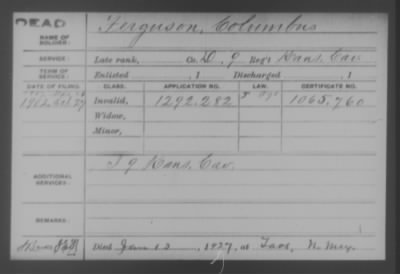 DEAD
NAME OF SOLDIER: Ferguson, Columbus
SERVICE: Late rank, Co. D, 9 Reg't Kans. Cav.
TERM OF SERVICE: Enlisted , 1 Discharged , 1
DATE OF FILING. CLASS. APPLICATION NO. LAW. CERTIFICATE NO.
1902 Oct. 27 Invalid, 1292,282 1065,760
Widow,
Minor,
ADDITIONAL SERVICES: 9 Kans. Cav.
REMARKS:
Died Jan 12, 1927, at Taos, N. Mex.